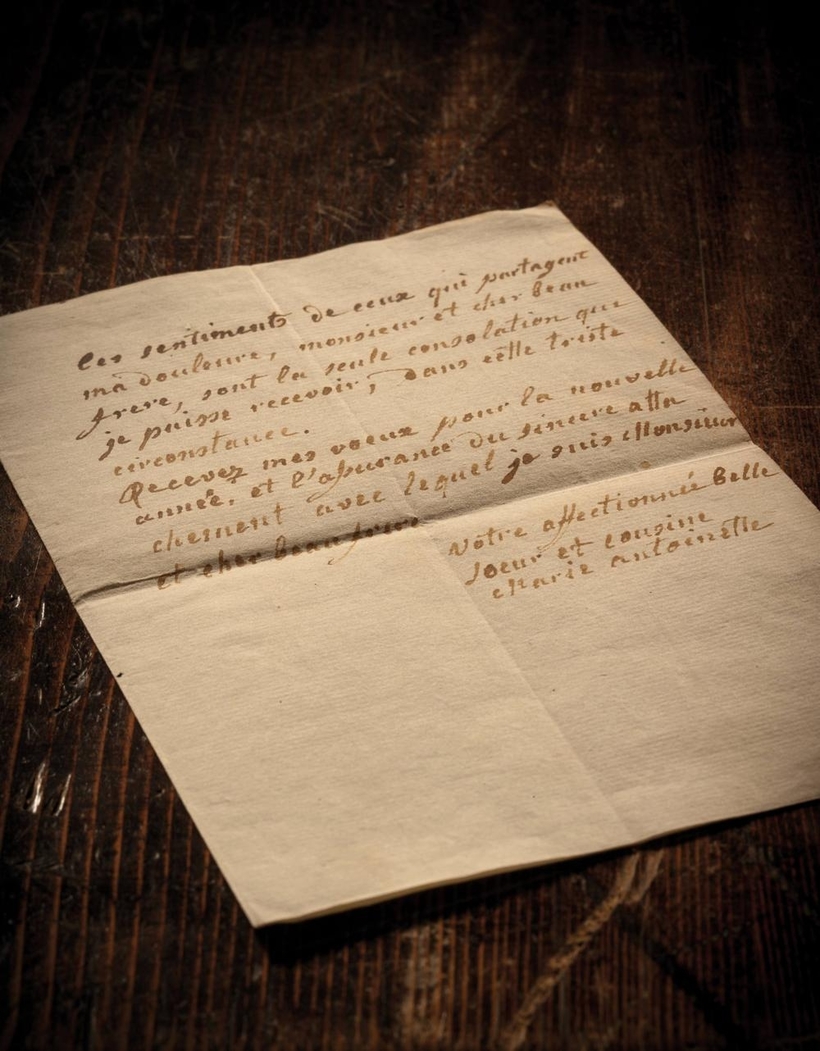 les sentiments de ceux qui partagent
ma douleure, monsieur et cher beau
frere, sont la seule consolation que
je puisse recevoir, dans cette triste
circonstance.
Recevez mes voeux pour la nouvelle
année, et l'assurance du sincere atta
chement avec lequel je suis Monsieur
et cher beau frere
Votre affectionnée Belle
soeur et cousine
Marie antoinette